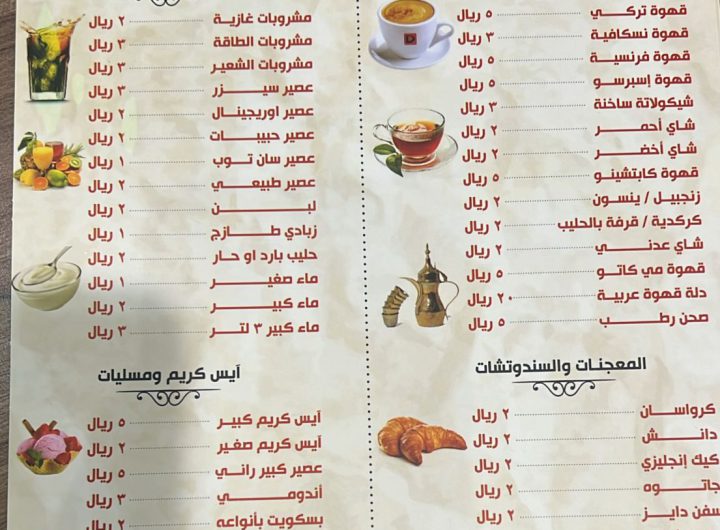 قهوة تركي ٥ ريال
قهوة نسكافية ٣ ريال
قهوة فرنسية ٥ ريال
قهوة إسبرسو ٥ ريال
شيكولاتة ساخنة ٣ ريال
شاي أحمر ٢ ريال
شاي أخضر ٢ ريال
قهوة كابتشينو ٥ ريال
زنجبيل / ينسون ٢ ريال
كركدية / قرفة بالحليب ٢ ريال
شاي عدني ٢ ريال
قهوة مي كاتو ٥ ريال
دلة قهوة عربية ٢٠ ريال
صحن رطب ٥ ريال
المعجنات والسندوتشات
كرواسان ٢ ريال
دانش ٢ ريال
كيك إنجليزي ٢ ريال
جاتوه ٢ ريال
سفن دايز ٢ ريال
مشروبات غازية ٢ ريال
مشروبات الطاقة ٣ ريال
مشروبات الشعير ٣ ريال
عصير سيزر ٣ ريال
عصير اوريجينال ٢ ريال
عصير حبيبات ٢ ريال
عصير سان توب ١ ريال
عصير طبيعي ٢ ريال
لبن ٢ ريال
زبادي طازج ١ ريال
حليب بارد او حار ٢ ريال
ماء صغير ١ ريال
ماء كبير ٢ ريال
ماء كبير ٣ لتر ٣ ريال
آيس كريم ومسليات
آيس كريم كبير ٥ ريال
آيس كريم صغير ٢ ريال
عصير كبير راني ٥ ريال
أندومي ٣ ريال
بسكويت بأنواعه ٢ ريال